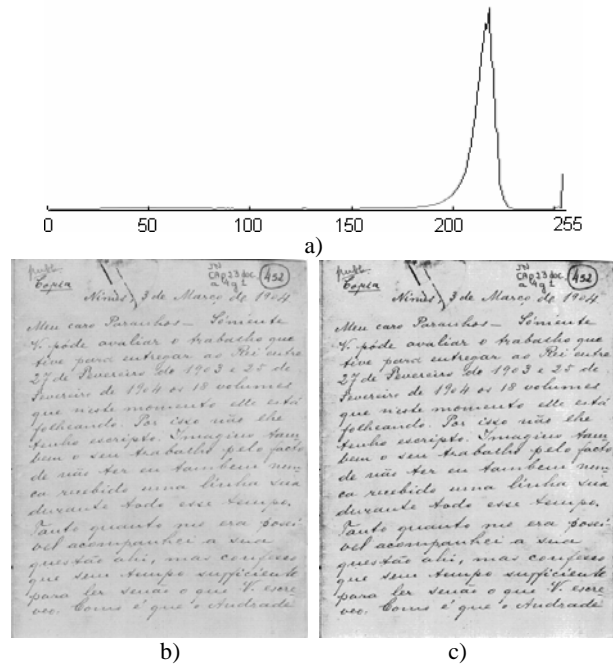 0 50 100 150 200 255
a)
452
Copia
Nimes, 3 de Março de 1904.
Meu caro Paranhos — Sómente
V. póde avaliar o trabalho que
tive para entregar ao Rei entre
27 de Fevereiro de 1903 e 25 de
Fevereiro de 1904 os 18 volumes
que neste momento elle está
folheando. Por isso não lhe
tenho escripto. Imagino tam-
bem o seu trabalho pelo facto
de não ter eu tambem nun-
ca recebido uma linha sua
durante todo esse tempo.
Tanto quanto me era possi-
vel acompanhei a sua
questão ahi, mas confesso
que sem tempo sufficiente
para ler senão o que V. escre-
veo. Como é que o Andrade
b)
452
Copia
Nimes, 3 de Março de 1904.
Meu caro Paranhos — Sómente
V. póde avaliar o trabalho que
tive para entregar ao Rei entre
27 de Fevereiro de 1903 e 25 de
Fevereiro de 1904 os 18 volumes
que neste momento elle está
folheando. Por isso não lhe
tenho escripto. Imagino tam-
bem o seu trabalho pelo facto
de não ter eu tambem nun-
ca recebido uma linha sua
durante todo esse tempo.
Tanto quanto me era possi-
vel acompanhei a sua
questão ahi, mas confesso
que sem tempo sufficiente
para ler senão o que V. escre-
veo. Como é que o Andrade
c)